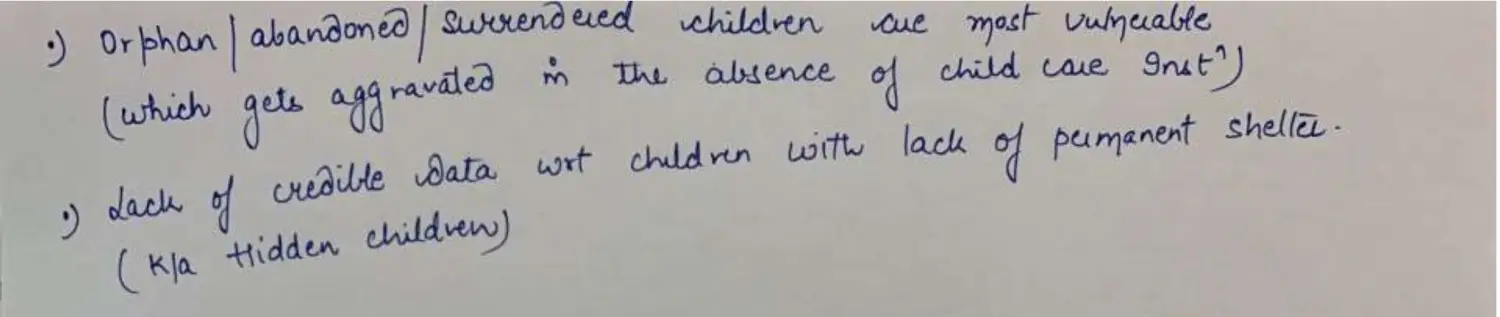 •) Orphan | abandoned | surrendered children are most vulnerable
(which gets aggravated in the absence of child care Instⁿ)
•) Lack of credible data wrt children with lack of permanent shelter.
(K/a Hidden children)